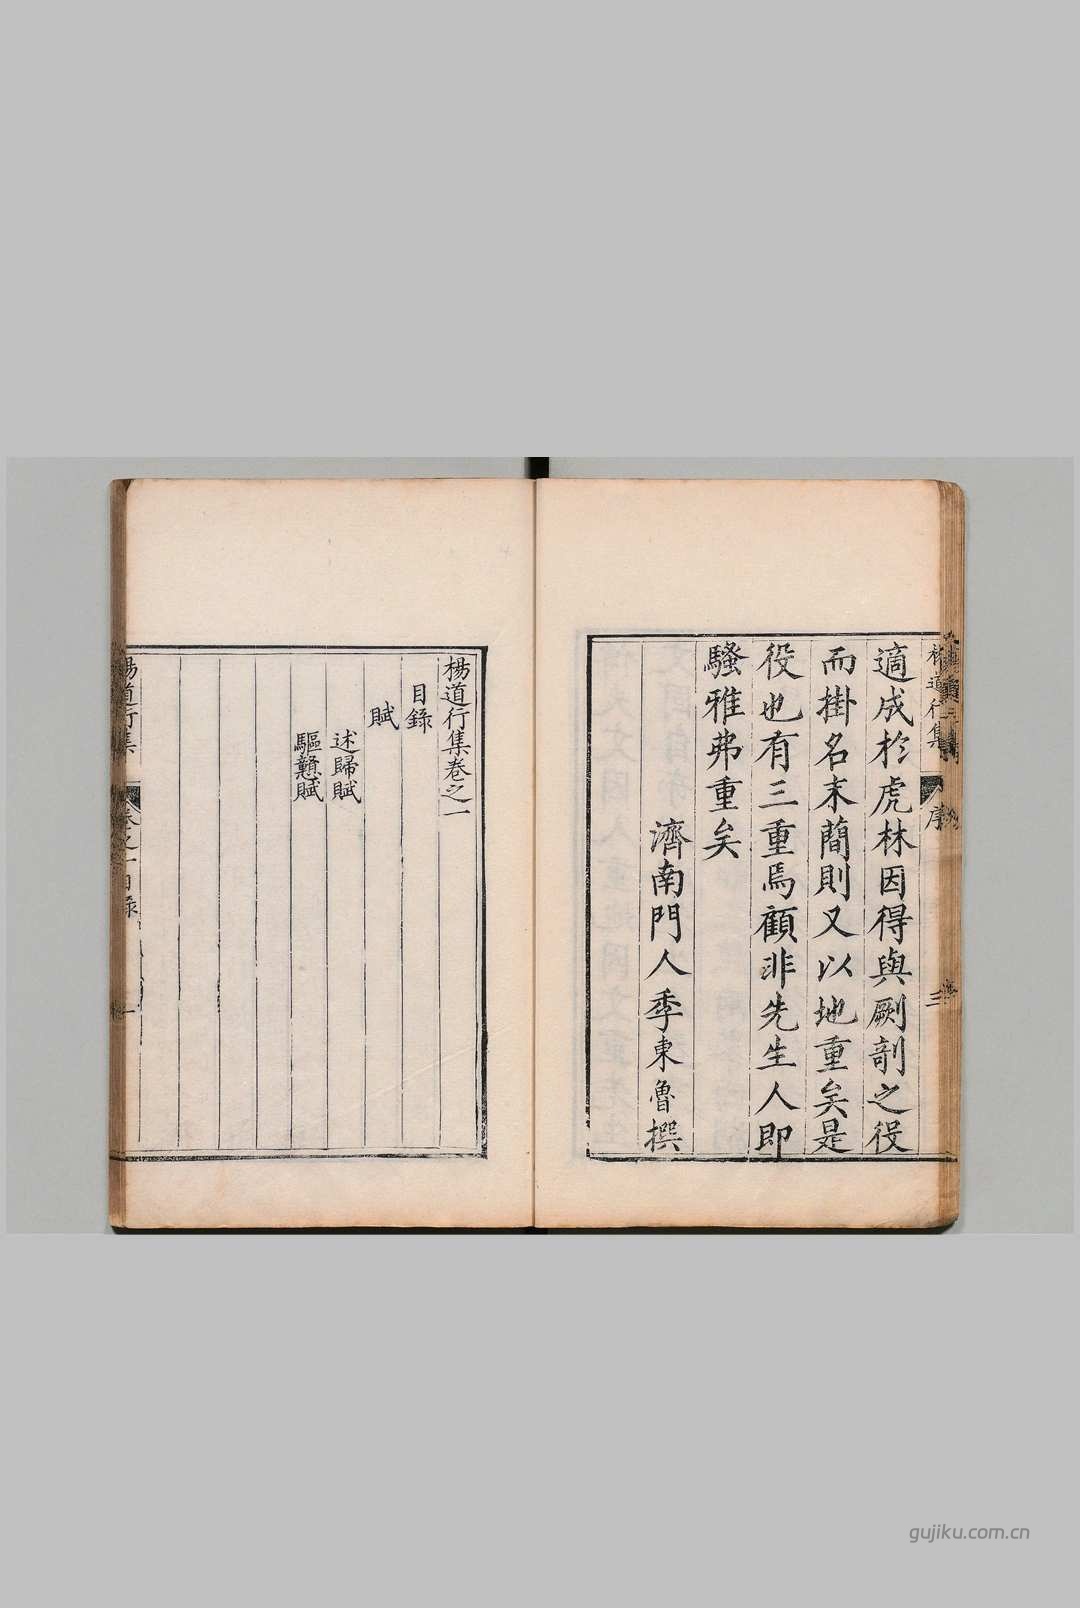 楊道行集
序
三
適成於虎林因得與劂剞之役
而掛名末簡則又以地重矣是
役也有三重焉顧非先生人即
騷雅弗重矣
濟南門人季東魯撰
楊道行集卷之一
目錄
賦
述歸賦
驅戅賦
楊道行集
卷之一目錄
一
gujiku.com.cn